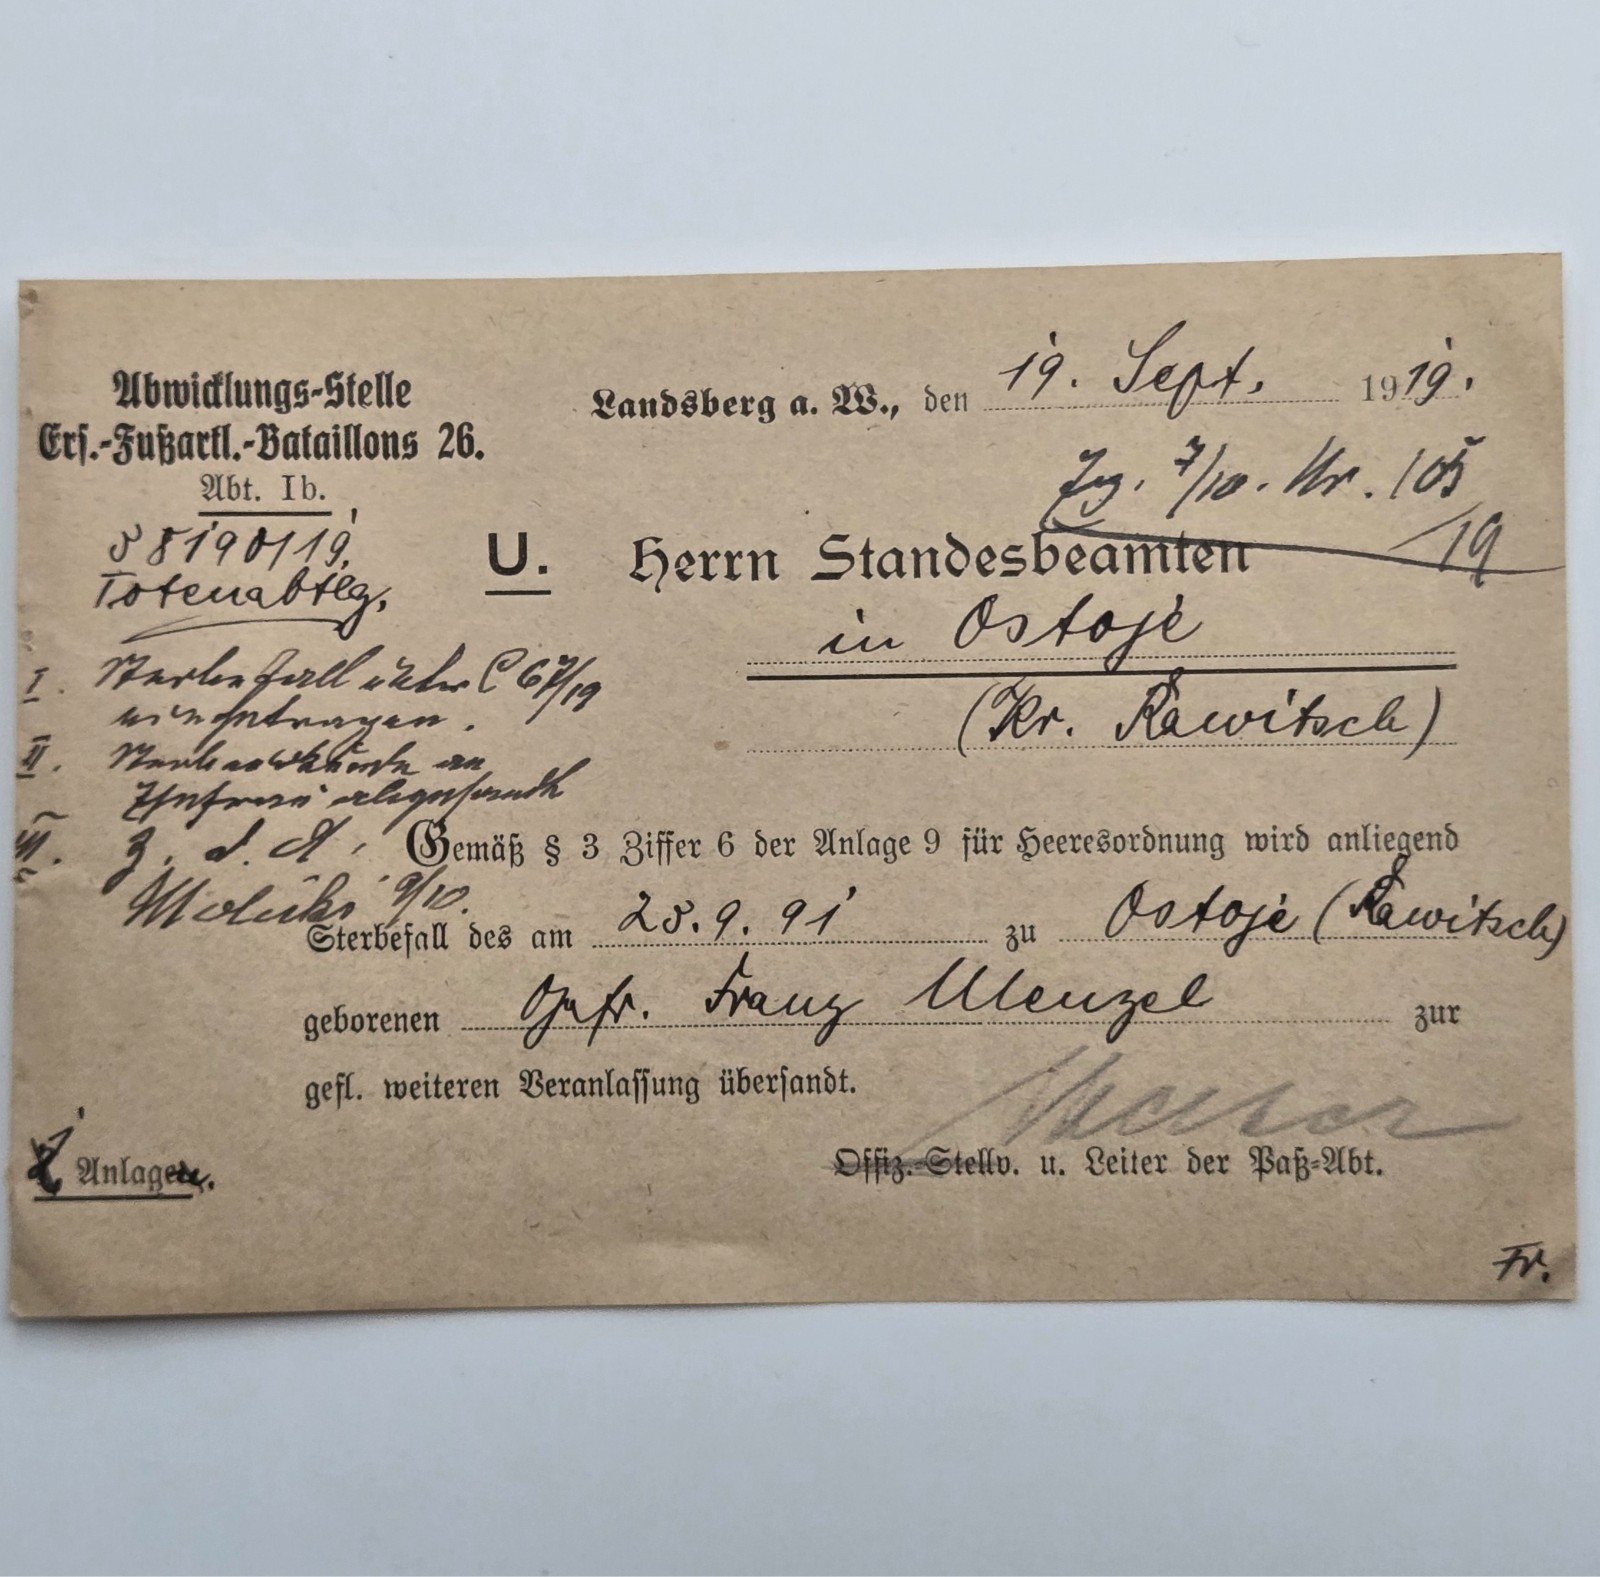 Abwicklungs-Stelle
Ers.-Fußartl.-Bataillons 26.
Abt. Ib.
Totenabtlg.
Landsberg a. W., den 19. Sept. 1919.
7/10. Nr. 105
19
U. Herrn Standesbeamten
in Ostoje
(Kr. Rawitsch)
I. Sterbefall unter C 67/19
eingetragen.
II. Sterbeurkunde an
Ehefrau abgesandt
III. z. d. A.
9/10.
Gemäß § 3 Ziffer 6 der Anlage 9 für Heeresordnung wird anliegend
Sterbefall des am 25.9.91 zu Ostoje (Rawitsch)
geborenen Gefr. Franz Menzel zur
gefl. weiteren Veranlassung übersandt.
Offiz.-Stellv. u. Leiter der Paß-Abt.
1 Anlage
Fr.